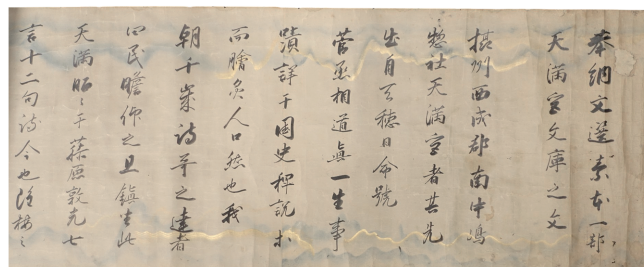 奉納文選素本一部
天満宮文庫之文
摂州西成郡南中嶋
惣社天満宮者其先
出自天穂日命號
菅丞相道眞一生事
蹟詳于国史稗説
而膾炙人口然也我
朝千歳詩草之達者
四民瞻仰之且鎮坐此
天満昭々乎藤原敦光七
言十二句詩今也